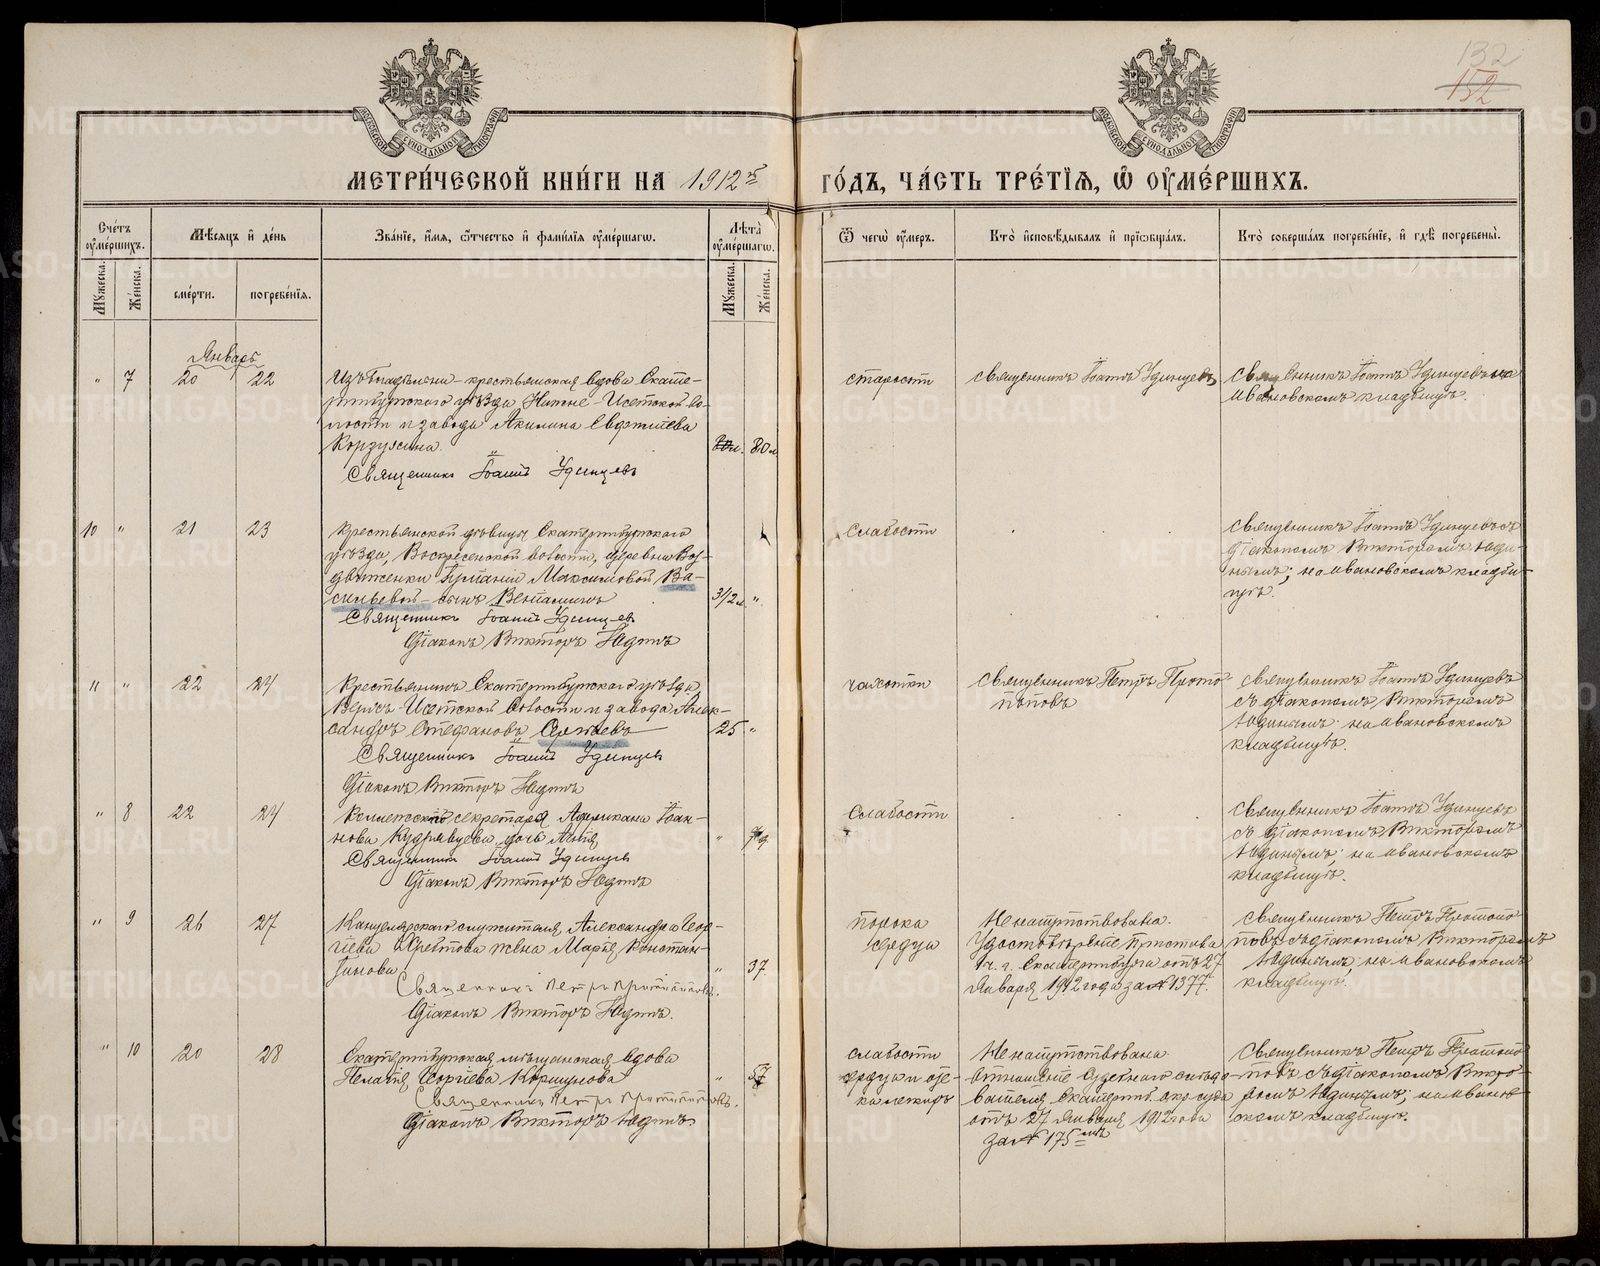 132
152
МЕТРИ́ЧЕСКОЙ КНИ́ГИ НА 1912й ГО́ДЪ, ЧА́СТЬ ТРЕ́ТІѦ, Ѽ ОУМЕ́РШИХЪ.
Сче́тъ оуме́ршихъ.
Мѣсяцъ и де́нь
Зва́ніе, и́мя, ѻ҆́тчество и фами́лія оуме́ршагѡ.
Лѣта̀ оуме́ршагѡ.
Ѿ чегѡ̀ оу́меръ.
Кто̀ и҆сповѣ́дывалъ и҆ прїѡбща́лъ.
Кто̀ соверша́лъ погребе́ніе, и҆ гдѣ̀ погребены̀.
Мꙋжеска.
Же́нска.
сме́рти.
погребе́нія.
Мꙋжеска.
Же́нска.
Январь
" 7 20 22
крестьянская вдова Екате-
ринбургскаго уѣзда Нижне-Исетской во-
лости и завода Акилина
80 л.
Священникъ Іоаннъ Удинцевъ
старости
священникъ Іоаннъ Удинцевъ
священникъ Іоаннъ Удинцевъ на
Ивановскомъ кладбищѣ.
10 " 21 23
Крестьянской дѣвицы Екатеринбургскаго
уѣзда, Воскресенской волости, деревни Воз-
движенки Максимовой Ва-
сильевой - сынъ Веніаминъ
3 1/2 м. "
Священникъ Іоаннъ Удинцевъ
Діаконъ Викторъ Юдинъ
слабости
священникъ Іоаннъ Удинцевъ съ
діакономъ Викторомъ Юди-
нымъ; на Ивановскомъ кладби-
щѣ.
11 " 22 24
Крестьянинъ Екатеринбургскаго уѣзда,
Верхъ-Исетской волости и завода Алек-
сандръ Стефановъ Сергѣевъ
25 "
Священникъ Іоаннъ Удинцевъ
Діаконъ Викторъ Юдинъ
чахотки
священникъ Петръ Прото-
поповъ
священникъ Іоаннъ Удинцевъ
съ діакономъ Викторомъ
Юдинымъ на Ивановскомъ
кладбищѣ.
" 8 22 24
Коллежскаго секретаря Африкана Іоан-
нова Кудрявцева дочь
Священникъ Іоаннъ Удинцевъ
Діаконъ Викторъ Юдинъ
слабости
священникъ Іоаннъ Удинцевъ
съ діакономъ Викторомъ
Юдинымъ; на Ивановскомъ
кладбищѣ.
" 9 26 27
Канцелярскаго служителя Александра Геор-
гіева жена Марія Константи-
нова
" 37
Священникъ Петръ Протопоповъ.
Діаконъ Викторъ Юдинъ.
порока
сердца
Не напутствована.
Удостовѣреніе пристава
1 ч. г. Екатеринбурга отъ 27
Января 1912 года за № 1377.
священникъ Петръ Протопо-
повъ съ діакономъ Викторомъ
Юдинымъ; на Ивановскомъ
кладбищѣ.
" 10 20 28
Екатеринбургская мѣщанская вдова
Пелагія Георгіева Коршунова
" 57
Священникъ Петръ Протопоповъ.
Діаконъ Викторъ Юдинъ
слабости
сердца и оже-
Не напутствована.
Отношеніе Судебнаго слѣдо-
вателя Екатеринб. окр. суда
отъ 27 Января 1912 года
за № 175
священникъ Петръ Протопо-
повъ съ діакономъ Викто-
ромъ Юдинымъ; на Иванов-
скомъ кладбищѣ.
METRIKI.GASO-URAL.RU